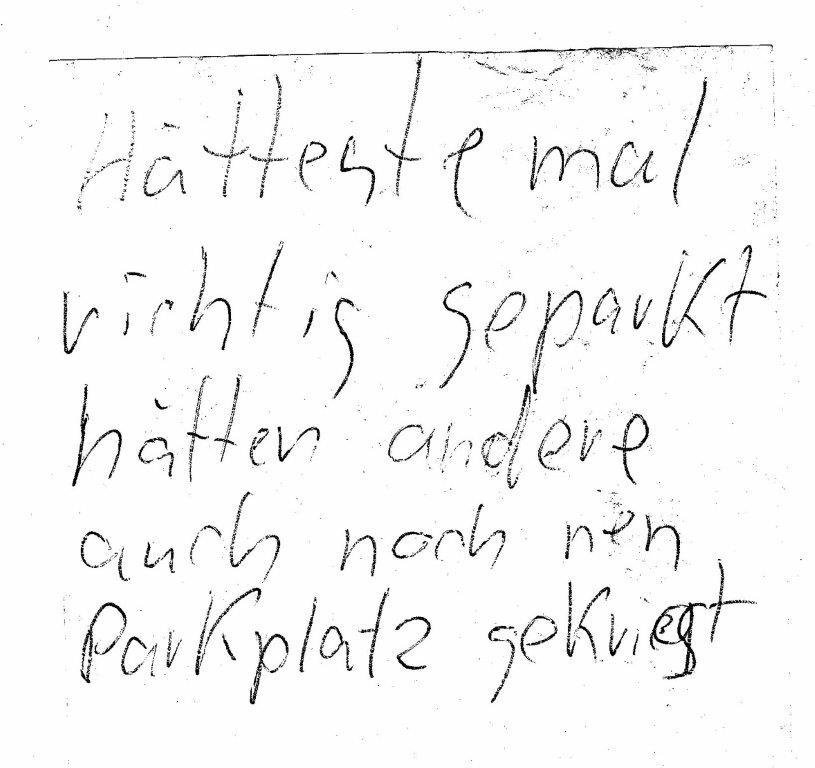 Hätteste mal
richtig geparkt
hätten andere
auch noch nen
Parkplatz gekriegt